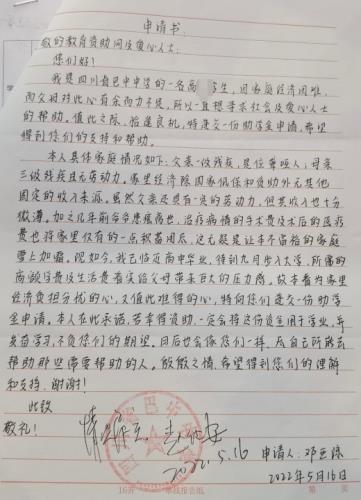 申请书:
敬的教育资助网及爱心人士:
您们好!
我是四川省巴中中学的一名高 学生,因家庭经济困难,
而父母对此心有余而力不足,所以一直想寻求社会及爱心人士
的帮助。值此之际,恰逢良机,特递交一份助学金申请,希望
得到您们的支持和帮助。
本人具体家庭情况如下:父亲一级残疾,是位聋哑人;母亲
三级残疾且无劳动力。家里经济除国家低保和资助外无其他
固定的收入来源。虽然父亲还具有一定的劳动力,但其收入也十分
微薄。加之几年前爷爷患癌病逝,治疗病情的手术费及术后的医疗
费也将家里仅有的一点积蓄用尽,这无疑是让本不富裕的家庭
雪上加霜。现如今,我已临近高中毕业,待到九月步入大学,所需的
高额学费及生活费着实给父母带来巨大的压力感。故本着为家里
经济负担分忧的心,又值此难得的心,特向你们递交一份助学
金申请。本人在此承诺,若幸得资助,一定会将这份资金用于学业,并
发奋学习,不负您们的期望。日后也会像您们一样,尽自己所能去
帮助那些需要帮助的人。殷殷之情,希望得到您们的理解
和支持,谢谢!
此致
敬礼!
情况属实
2022.5.16
申请人:邓
2022年5月16日
16开 审核报告纸 第 页